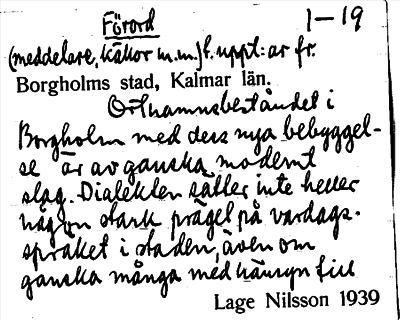 Förord 1-19
(meddelare, källor m.m.) t. uppt:ar fr.
Borgholms stad, Kalmar län.
Ortnamnsbeståndet i
Borgholm med dess nya bebyggel-
se är av ganska modernt
slag. Dialekten sätter inte heller
någon stark prägel på vardags-
språket i staden, även om
ganska många med hänsyn till
Lage Nilsson 1939